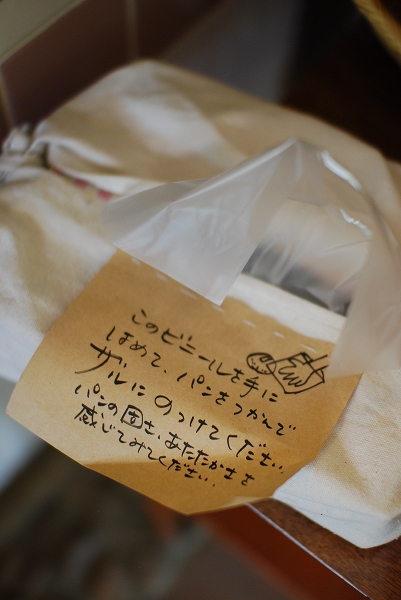 このビニールを手に
はめて、パンをつかんで
ザルにのっけてください。
パンの固さ、あたたかさを
感じてみてください。